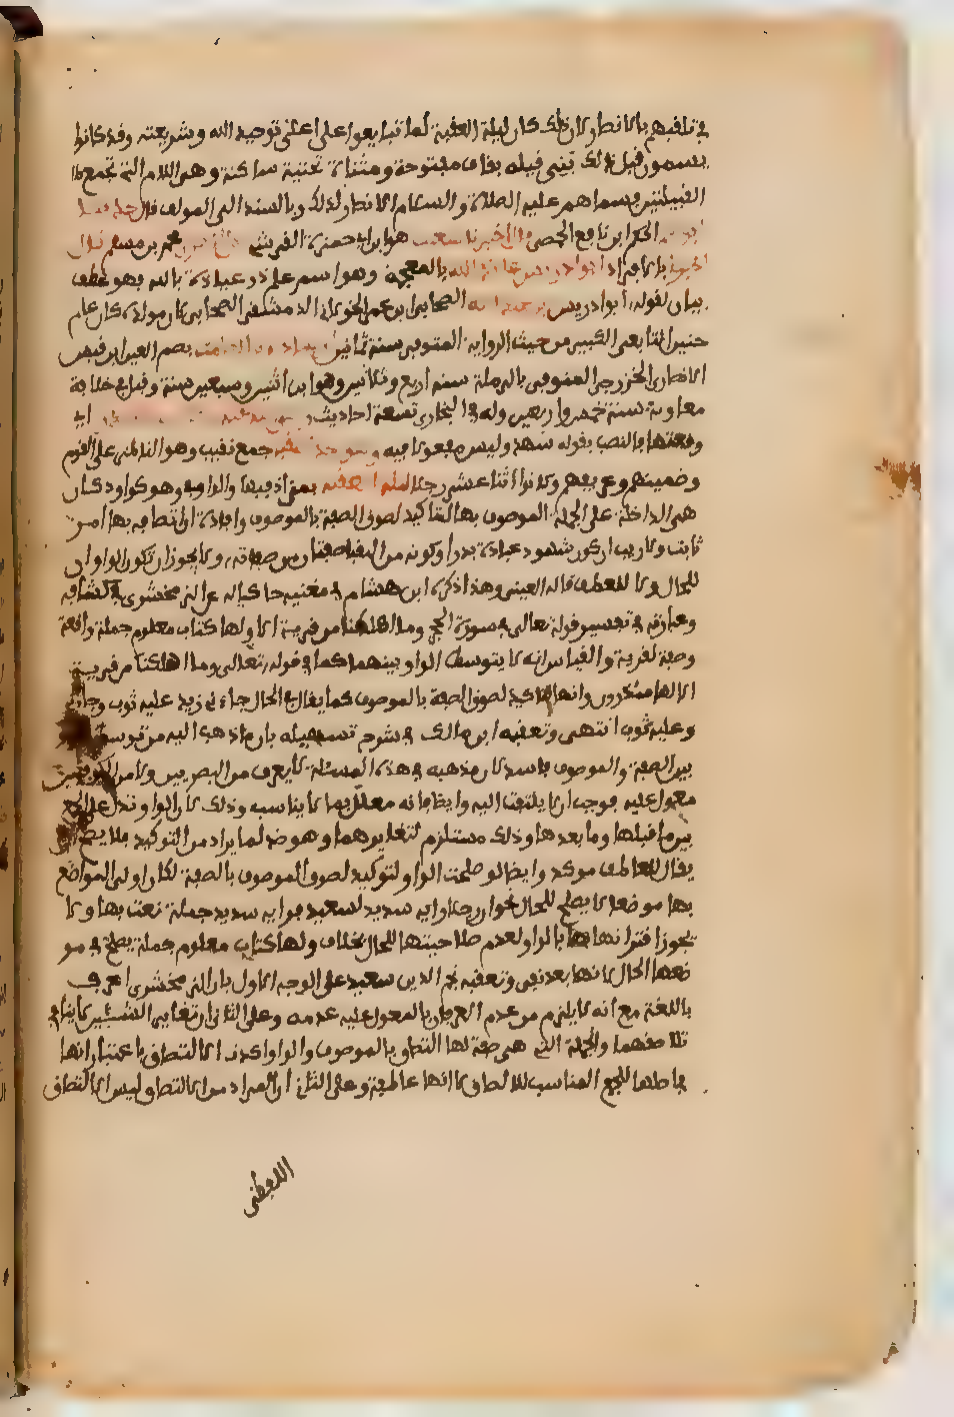 في تلقيبهم بالانصار لان ذلك كان ليلة العقبة لما تبايعوا على اعلى توحيد الله وشريعته وقد كانوا
يسمون قبل ذلك بني قيله بقاف مفتوحة ومثناة تحتية ساكنة وهي الام التي تجمع
القبيلتين فسماهم عليه الصلاة والسلام الانصار لذلك وبالسند الى المولف قال حدثنا
الحكم ابن نافع الحمصي قال اخبرنا شعيب هو ابن ابي حمزة القرشي محمد بن مسلم قال
اخبرني بالافراد ابو ادريس عائذ الله بالمعجمة وهو اسم علم ذو عبادة بالله فهو عطف
بيان لقوله ابو ادريس بن عبد الله الصحابي ابن عمر الخولاني الدمشقي الصحابي كان مولده كان عام
حنين التابعي الكبير من حيث الرواية المتوفى سنة ثمانين بضم العين ابن قيس
الانصاري الخزرجي المتوفى بالرملة سنة اربع وثلاثين وهو ابن اثنين وسبعين سنة وقيل في خلافة
معاوية سنة خمس واربعين وله في البخاري تسعة احاديث
وقعتها بالنصب بقوله شهد وليس مفعولا فيه وهو احد النقباء جمع نقيب وهو الناظر على القوم
وضمينهم وعريفهم وكانوا اثنا عشر رجلا ليلة العقبة بمنى اي فيها والواو في وهو كواو وكان
هي الداخلة على الجملة الموصوف بها لتاكيد لصوق الصفة بالموصوف وافادة ان اتصافه بها امر
ثابت ولا ريب ان كون شهود عبادة بدرا وكونه من النقباء صفتان من صفاته ولا يجوز ان تكون الواو ان
للحال ولا للعطف قاله العيني وهذا ذكره ابن هشام في مغنيه حاكيا له عن الزمخشري في كشافه
وعبارته في تفسير قوله تعالى في سورة الحجر وما اهلكنا من قرية الا ولها كتاب معلوم جملة واقعة
وصفة لقرية والقياس انه لا يتوسط الواو بينهما كما في قوله تعالى وما اهلكنا من قرية
الا لها منذرون وانها لتاكيد لصوق الصفة بالموصوف كما يقال في الحال جاءني زيد عليه ثوب وجاءني
وعليه ثوب انتهى وتعقبه ابن مالك في شرح تسهيله بان ما ذهب اليه من توسط
بين الصفة والموصوف فاسد لان مذهبه في هذه المسئلة لا يعرف من البصريين ولا من الكوفيين
معول عليه فوجب ان لا يلتفت اليه وايضا فانه معلل بما لا يناسب وذلك لان الواو تدل على الجمع
بين ما قبلها وما بعدها وذلك مستلزم لتغايرهما وهو ضد لما يراد من التوكيد فلا يصح ان
يقال للعاطف موكد وايضا لو صلحت الواو لتوكيد لصوق الموصوف بالصفة لكان اولى المواضع
بها موضعا لا يصلح للحال نحو ان رجلا رايه سديد لسعيد فرايه سديد جملة نعت بها ولا
يجوز اقترانها بالواو لعدم صلاحيتها للحال بخلاف ولها كتاب معلوم جملة يصلح في مو
ضعها الحال لانها بعد نفي وتعقبه نجم الدين سعيد على الوجه الاول بان الزمخشري اعرف
باللغة مع انه لا يلزم من عدم العرفان بالمعول عليه عدمه وعلى الثاني ان تغاير الشيئين لا ينافي
تلاصقهما والجملة التي هي صفة لها التصاق بالموصوف والواو اكدت الالتصاق باعتبار انها
في اصلها للجمع المناسب للالصاق لا انها عاطفة وعلى الثالث ان المراد من الالتصاق ليس الالتصاق
اللفظي